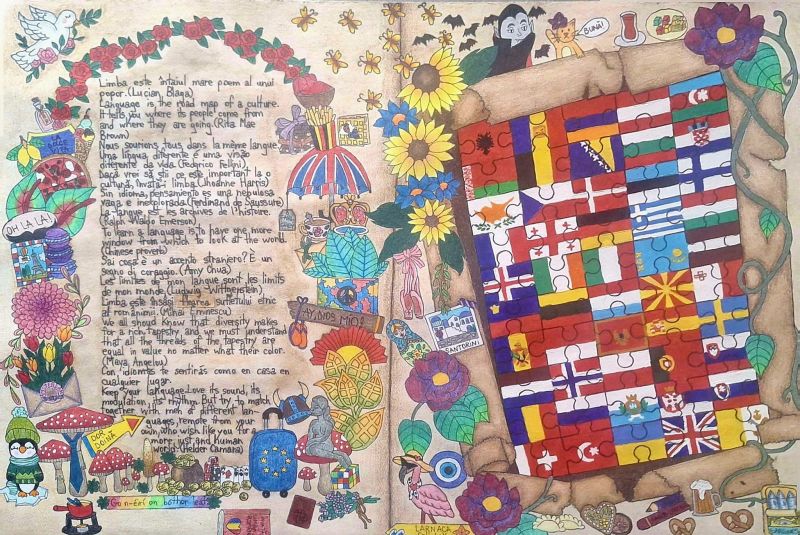 Limba este întâiul mare poem al unui
popor. (Lucian Blaga)
Language is the road map of a culture.
It tells you where its people come from
and where they are going. (Rita Mae
Brown)
Nous sourions tous dans la même langue.
Uma língua diferente é uma visão
diferente da vida. (Federico Fellini)
Dacă vrei să știi ce este important la o
cultură, învață-i limba. (Joanne Harris)
idioma, pensamiento es una nebulosa
vaga e inexplorada. (Ferdinand de Saussure)
La langue est les archives de l'histoire.
(Ralph Waldo Emerson)
To learn a language is to have one more
window from which to look at the world.
(Chinese proverb)
Sai cosa è un accento straniero? È un
segno di coraggio. (Amy Chua)
Les limites de mon langue sont les limits
de mon monde. (Ludwig Wittgenstein)
Limba este însăși floarea sufletului etnic
al românimii. (Mihai Eminescu)
We all should know that diversity makes
for a rich tapestry, and we must understand
that all the threads of the tapestry are
equal in value no matter what their color.
(Maya Angelou)
Con idiomas te sentirás como en casa en
cualquier lugar.
Keep your language. Love its sound, its
modulation, its rhythm. But try to march
together with men of different lan-
guages, remote from your
own, who wish like you for a
more just and human
world. (Helder Camara)
LA DOLCE VITA
OH LA LA!
DOR
DOINĂ
Go n-éirí an bóthar leat
¡AY, DIOS MÍO!
BUNĂ!
SANTORINI
LARNACA